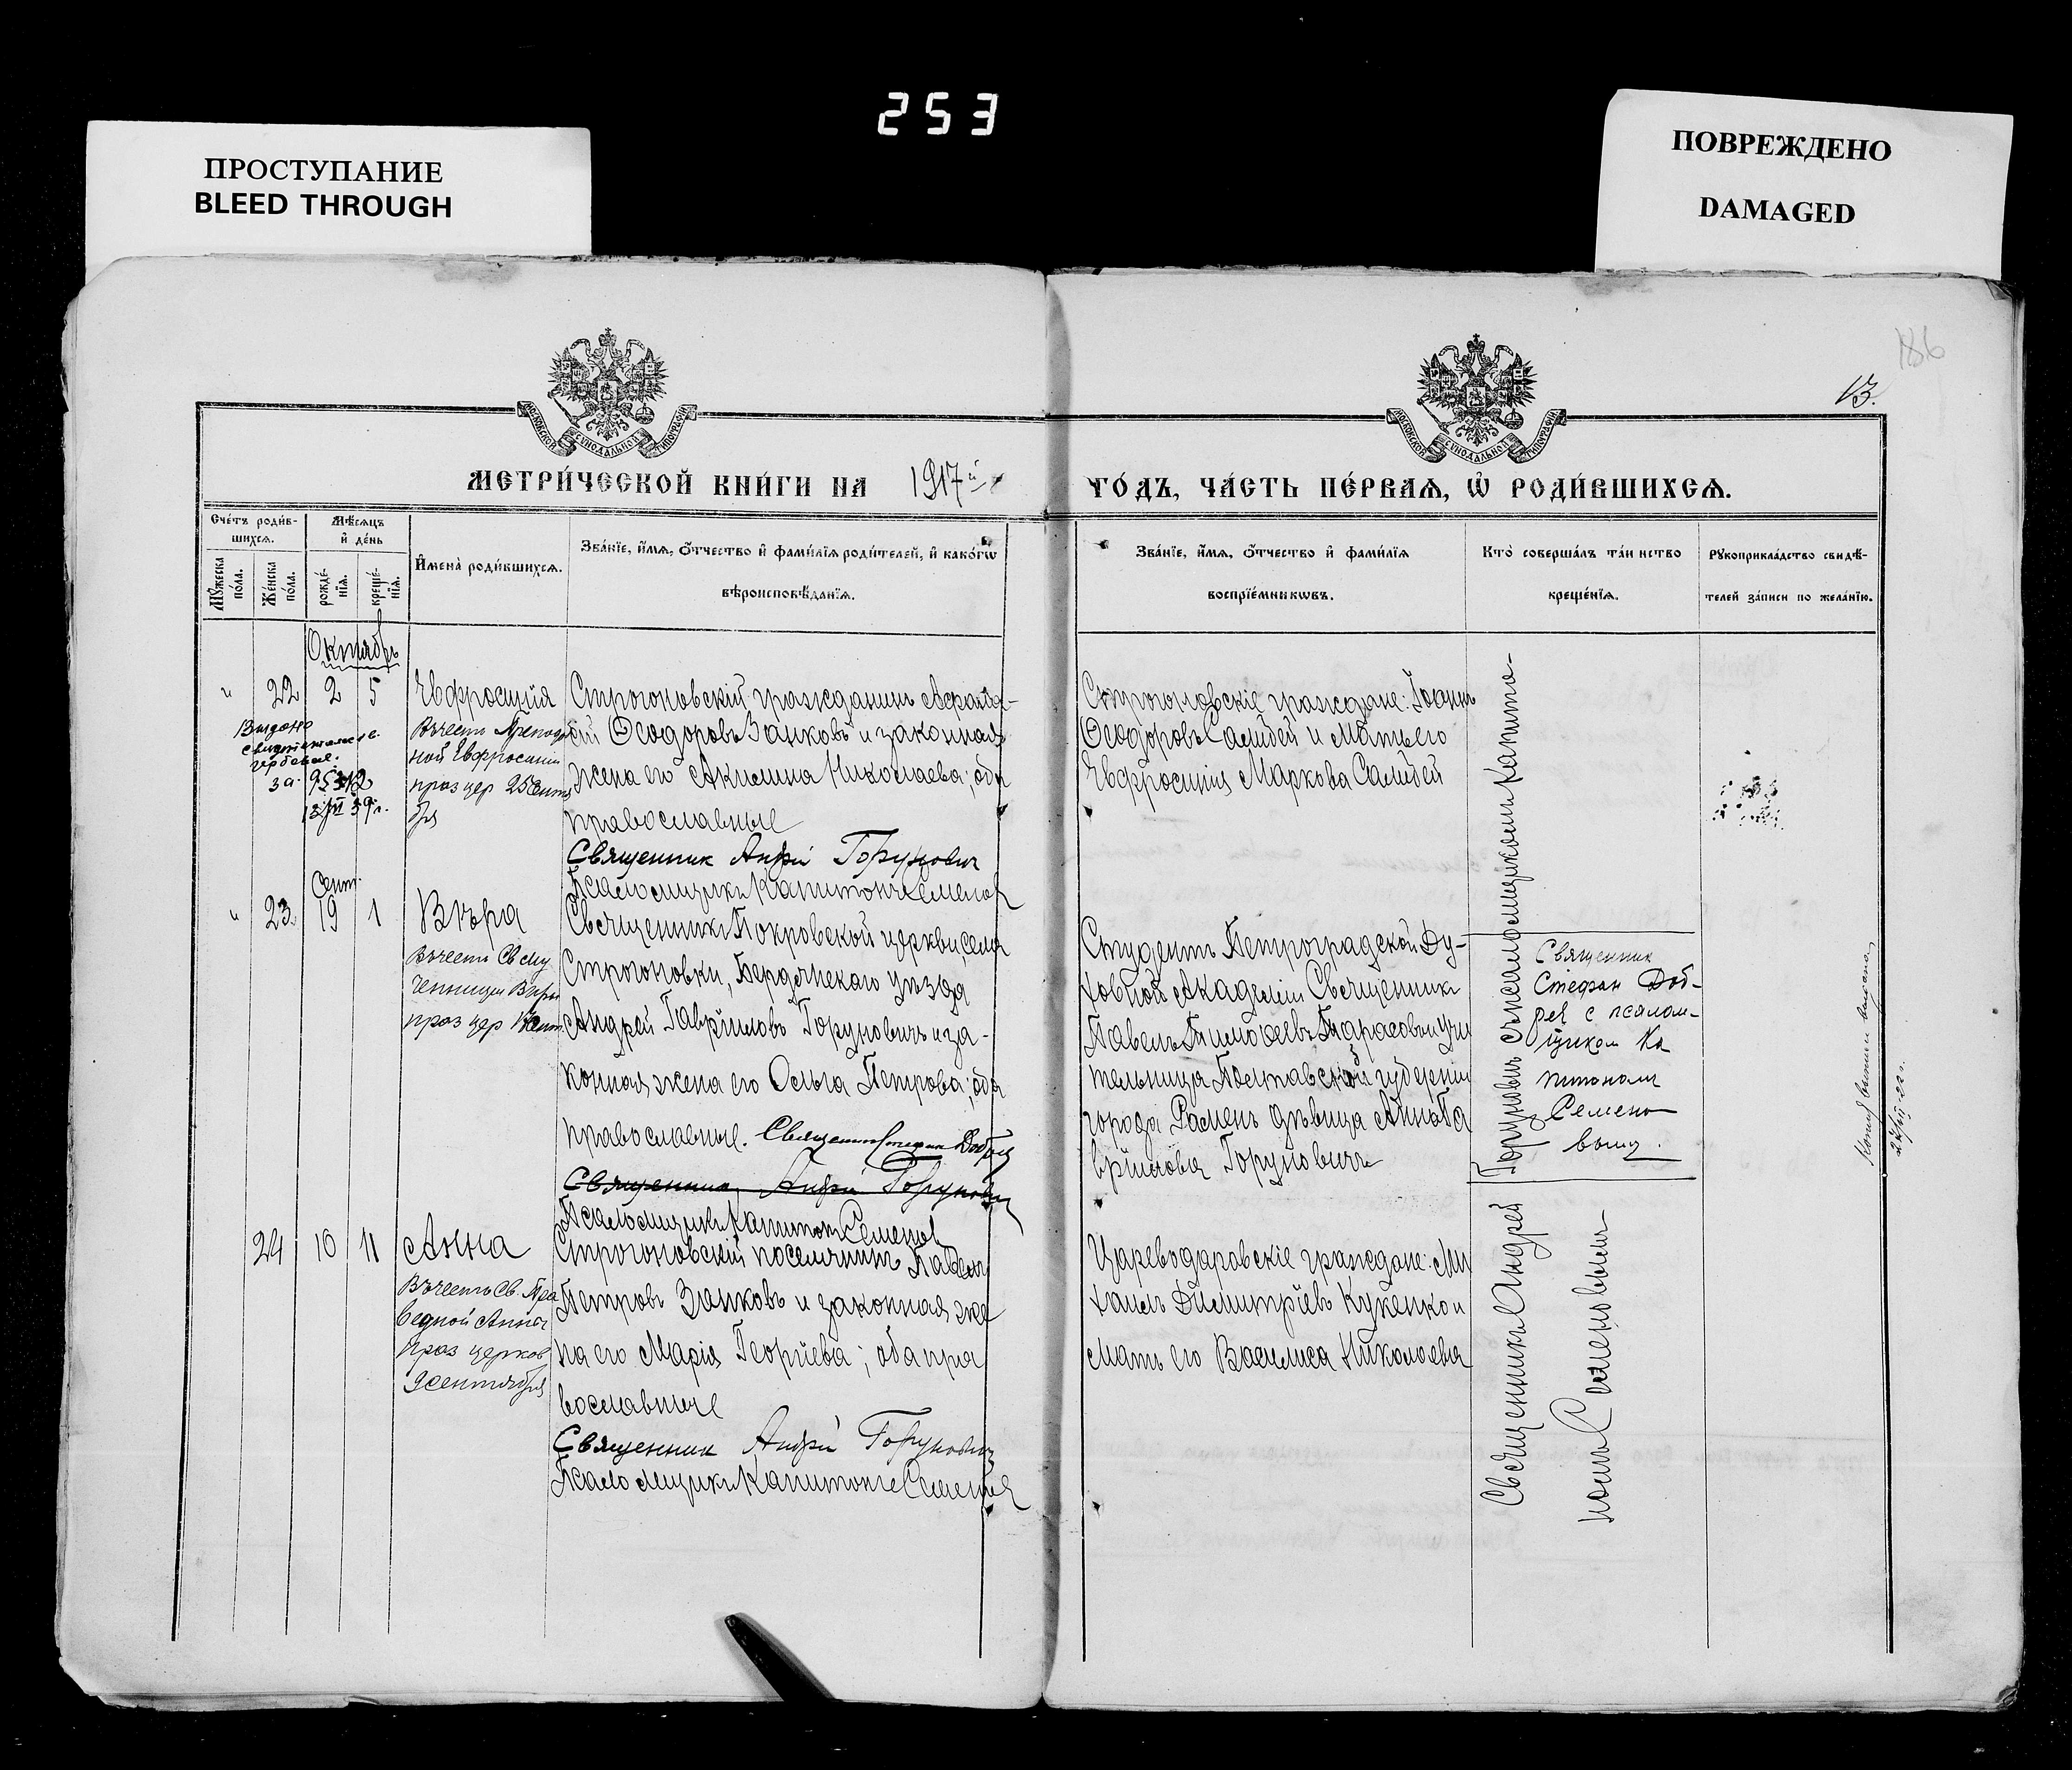 253
ПРОСТУПАНИЕ
BLEED THROUGH
ПОВРЕЖДЕНО
DAMAGED
186
13.
МОСКОВСКОЙ СѴНОДАЛЬНОЙ ТИПОГРАФІИ
МОСКОВСКОЙ СѴНОДАЛЬНОЙ ТИПОГРАФІИ
МЕТРИ́ЧЕСКОЙ КНИ́ГИ НА 1917й
ГО́ДЪ, ЧА́СТЬ ПЕ́РВАѦ, Ѡ҆ РОДИ́ВШИХСѦ.
Счетъ роди́в-
шихсѧ.
Мѣсѧцъ
и҆ де́нь
Мꙋ́жеска
по́ла.
Же́нска
по́ла.
рожде́-
нїѧ.
креще́-
нїѧ.
И҆мена̀ роди́вшихсѧ.
Зва́нїе, и҆́мѧ, ѻ҆́тчество и҆ фами́лїѧ роди́телей, и҆ како́гѡ
вѣроисповѣ́данїѧ.
Зва́нїе, и҆́мѧ, ѻ҆́тчество и҆ фами́лїѧ
воспрїе́мникѡвъ.
Кто̀ соверша́лъ та́инство
креще́нїѧ.
Рꙋкоприкла́дство свидѣ́-
телей за́писи по жела́нїю.
Октябрь
" 22 2 5 Евфросинія
Выдано
гербовое.
за
Въ честь Преподоб
ной Евфросиніи
праз цер 25 Сентя
бря
Строгоновскій гражданинъ Афана-
сій Ѳеодоровъ Занковъ и законная
жена его Акилина Николаева; оба
православные
Священник Андрій Горунович
Псаломщикъ Капитонъ Семенов
Строгоновскіе граждане: Іоаннъ
Ѳеодоровъ Самбей и мать его
Евфросинія Маркова Самбей
Сент.
" 23. 19 1 Вѣра
Въ честь Св му
ченницы Вѣры
праз цер Сент.
Священникъ Покровской церкви, села
Строгоновки, Бердянскаго уѣзда
Андрей Гавріиловъ Горуновичъ и за-
конная жена его Ольга Петрова; оба
православные. Священник Стефан Добрея
Священник Андрій Горунович
Псаломщикъ Капитон Семенов
Студентъ Петроградской Ду-
ховной Академіи Священникъ
Павелъ Тимоѳеевъ Тарасовъ и учи
тельница Полтавской губерніи
города Роменъ дѣвица Анна Га
вріилова Горуновичъ
Священник
Стефан Доб-
рея с псалом-
щиком Ка
питоном
Семено-
вым.
24 10 11 Анна
Въ честь Св. Пра
ведной Анны
праз церков
9 сентября
Строгоновскій поселянинъ Павелъ
Петровъ Занковъ и законная же
на его Марія Георгіева; оба пра
вославные
Священник Андрій Горунович
Псаломщикъ Капитонъ Семенов
Цареводаровскіе граждане: Ми
хаилъ Димитріевъ Куженко и
мать его Василиса Николаева
Священникъ Андрей Горуновичъ съ псаломщикомъ Капито-
номъ Семеновымъ